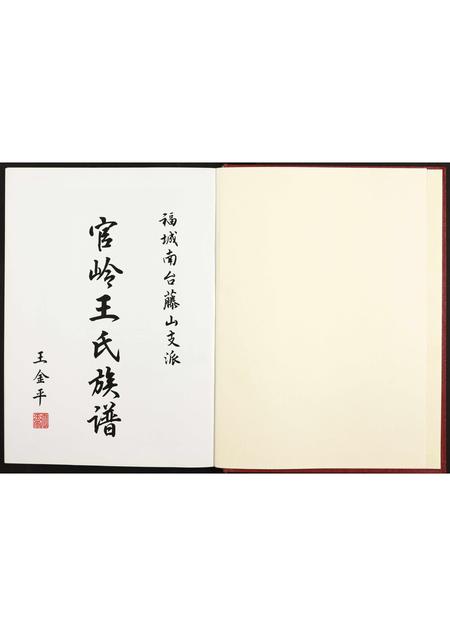 福城南台藤山支派
官岭王氏族谱
王金平